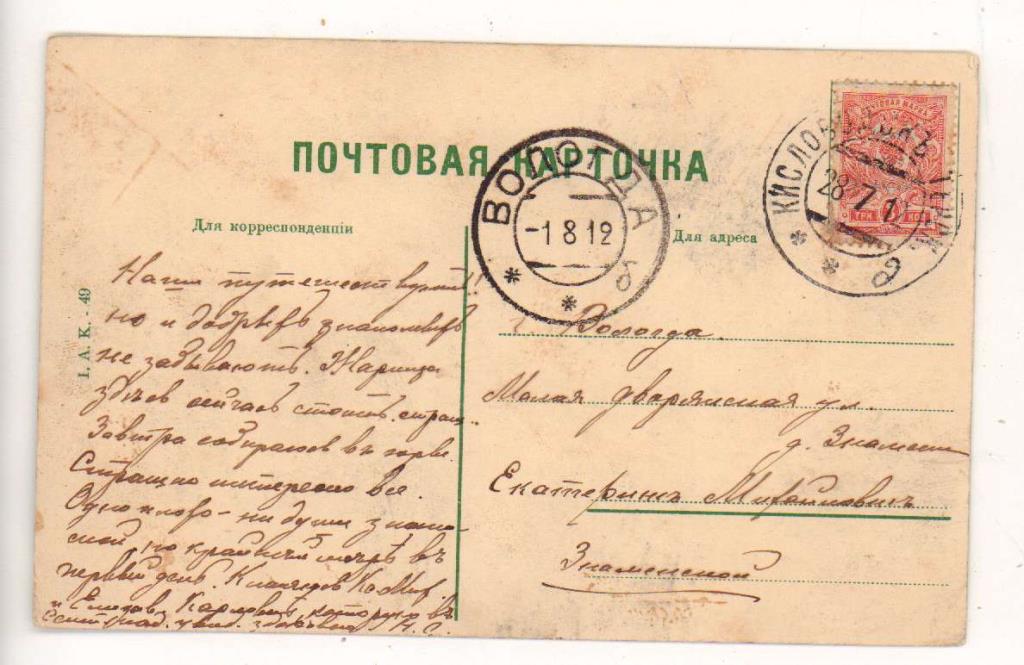 ПОЧТОВАЯ КАРТОЧКА
Для корреспонденціи
Для адреса
I. A. K. - 49
ВОЛОГДА
-1 8 12
б
КИСЛОВОДСКЪ
28 7 12
ТРИ КОП
Наши путешествуютъ
но и добрыхъ знакомыхъ
не забываютъ. Жарища
здѣсь сейчасъ стоитъ страш.
Завтра собираюсь въ горы.
Страшно интересно все.
Одно плохо - ни души знако-
мой, по крайней мѣрѣ, въ
первый день.
Карловну, которую въ
г. Вологда.
Малая дворянская ул.
д. Знаменской
Екатеринѣ Михайловнѣ
Знаменской